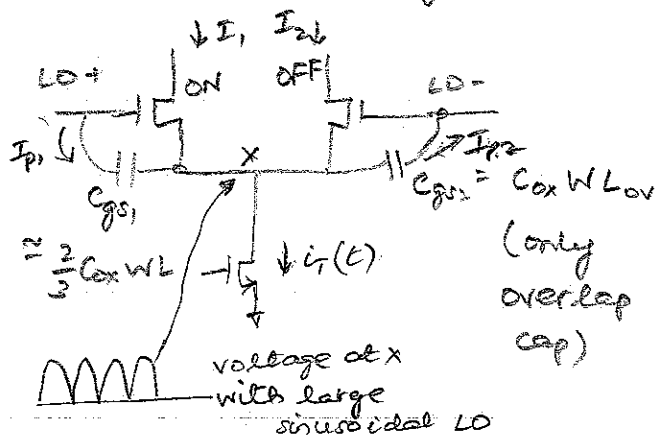 ↓I₁ I₂↓
LO+ ON OFF LO-
Iₚ₁ X Iₚ₂
Cgs₁ Cgs₂ = Cox W Lov
≈ 2/3 Cox WL ↓ i_T(t) (only
overlap
cap)
voltage at x
with large
sinusoidal LO